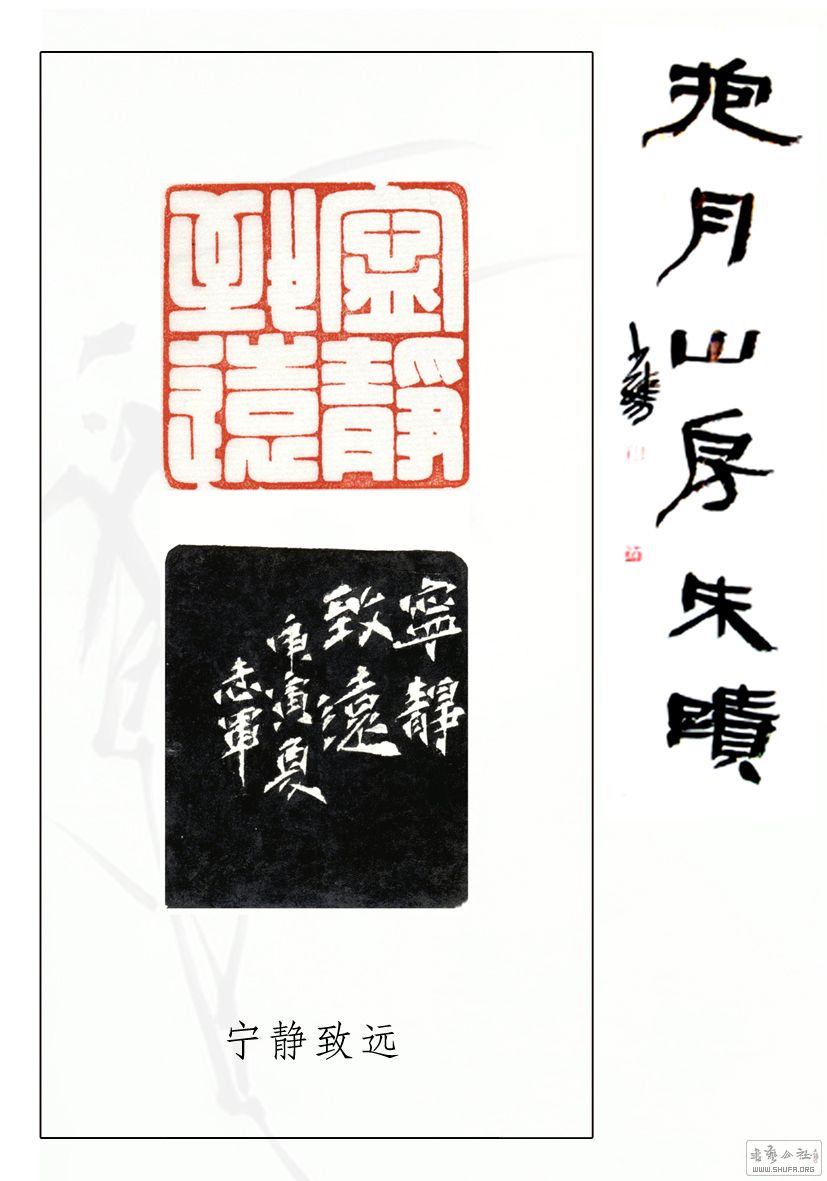 抱月山房朱蹟
寧靜
致遠
寧靜
致遠
庚寅夏
志軍
宁静致远
WWW.SHUFA.ORG